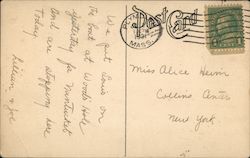 Post Card
PLYMOUTH
MASS.
We got Louis on
the boat at Woods Hole
yesterday for Nantucket
and are stopping here
today.
Lillian & Joe
Miss Alice Heim
Collins Center
New York.